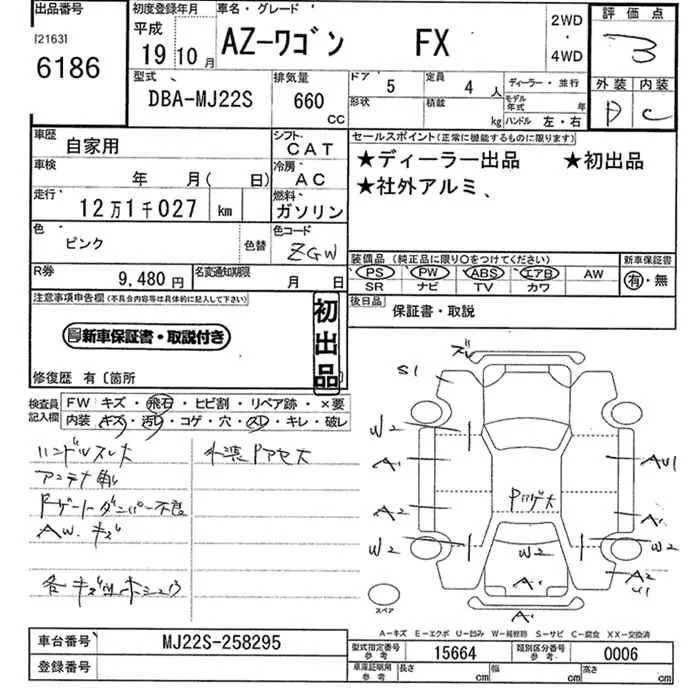 出品番号 初度登録年月 車名・グレード 2WD・4WD 評価点
[2163] 平成 19 10月 AZーワゴン FX 3
6186
型式 排気量 ドア 5 定員 4人 ディーラー・並行 外装 内装
DBA-MJ22S 660 CC 形状 積載 kg モデル年式 年 D C
ハンドル 左・右
車歴 自家用 シフト CAT セールスポイント(正常に機能するものに限ります)
車検 年 月( 日) 冷房 AC ★ディーラー出品 ★初出品
走行 12万1千027 km 燃料 ガソリン ★社外アルミ、
色 ピンク 色替 色コード ZGW
装備品 (純正品に限り○をつけてください) 新車保証書
R券 9,480円 名変通知期限 月 日 PS PW ABS エアB AW 有・無
SR ナビ TV カワ
注意事項申告欄(不具合内容等は具体的に記入して下さい) 初出品 後日品 保証書・取説
新車保証書・取説付き
修復歴 有〔箇所
検査員記入欄 FW キズ・飛石・ヒビ割・リペア跡・×要
内装 キズ・汚レ・コゲ・穴・スレ・キレ・破レ
ハンドルスレ大 外装Pアセ大
アンテナ
ダンパー不良
AW キズ
各キズ
ズレ
S1
W2 W2
A1 AU1
A2 A1
W2 W2 W2
A1 A2 U1
A1
スペア
A-キズ E-エクボ U-凹み W-補修跡 S-サビ C-腐食 XX-交換済
車台番号 MJ22S-258295 型式指定番号 参考 15664 類別区分番号 参考 0006
登録番号 車庫証明用 参考 長さ cm 幅 cm 高さ cm